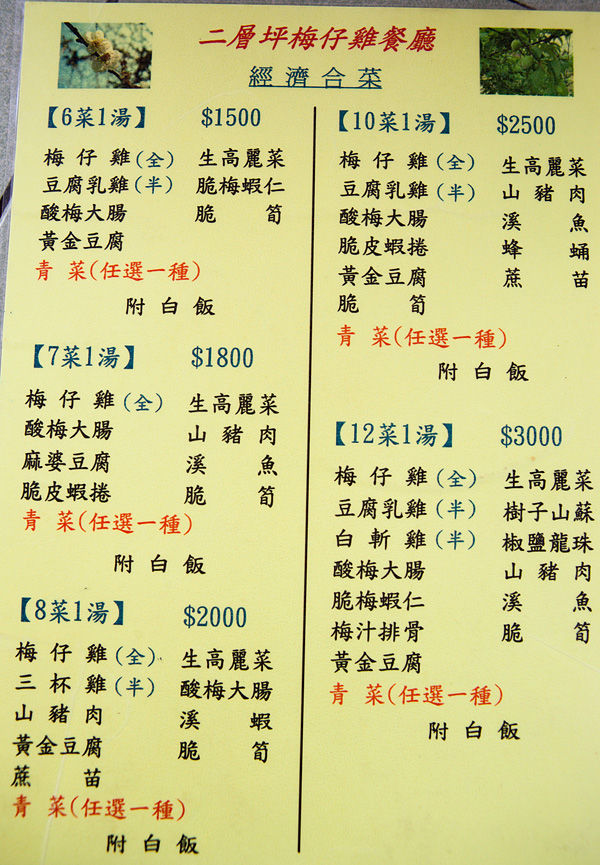 二層坪梅仔雞餐廳
經濟合菜
【6菜1湯】 $1500
梅仔雞(全) 生高麗菜
豆腐乳雞(半) 脆梅蝦仁
酸梅大腸 脆筍
黃金豆腐
青菜(任選一種)
附白飯
【7菜1湯】 $1800
梅仔雞(全) 生高麗菜
酸梅大腸 山豬肉
麻婆豆腐 溪魚
脆皮蝦捲 脆筍
青菜(任選一種)
附白飯
【8菜1湯】 $2000
梅仔雞(全) 生高麗菜
三杯雞(半) 酸梅大腸
山豬肉 溪蝦
黃金豆腐 脆筍
蔗苗
青菜(任選一種)
附白飯
【10菜1湯】 $2500
梅仔雞(全) 生高麗菜
豆腐乳雞(半) 山豬肉
酸梅大腸 溪魚
脆皮蝦捲 蜂蛹
黃金豆腐 蔗苗
脆筍
青菜(任選一種)
附白飯
【12菜1湯】 $3000
梅仔雞(全) 生高麗菜
豆腐乳雞(半) 樹子山蘇
白斬雞(半) 椒鹽龍珠
酸梅大腸 山豬肉
脆梅蝦仁 溪魚
梅汁排骨 脆筍
黃金豆腐
青菜(任選一種)
附白飯